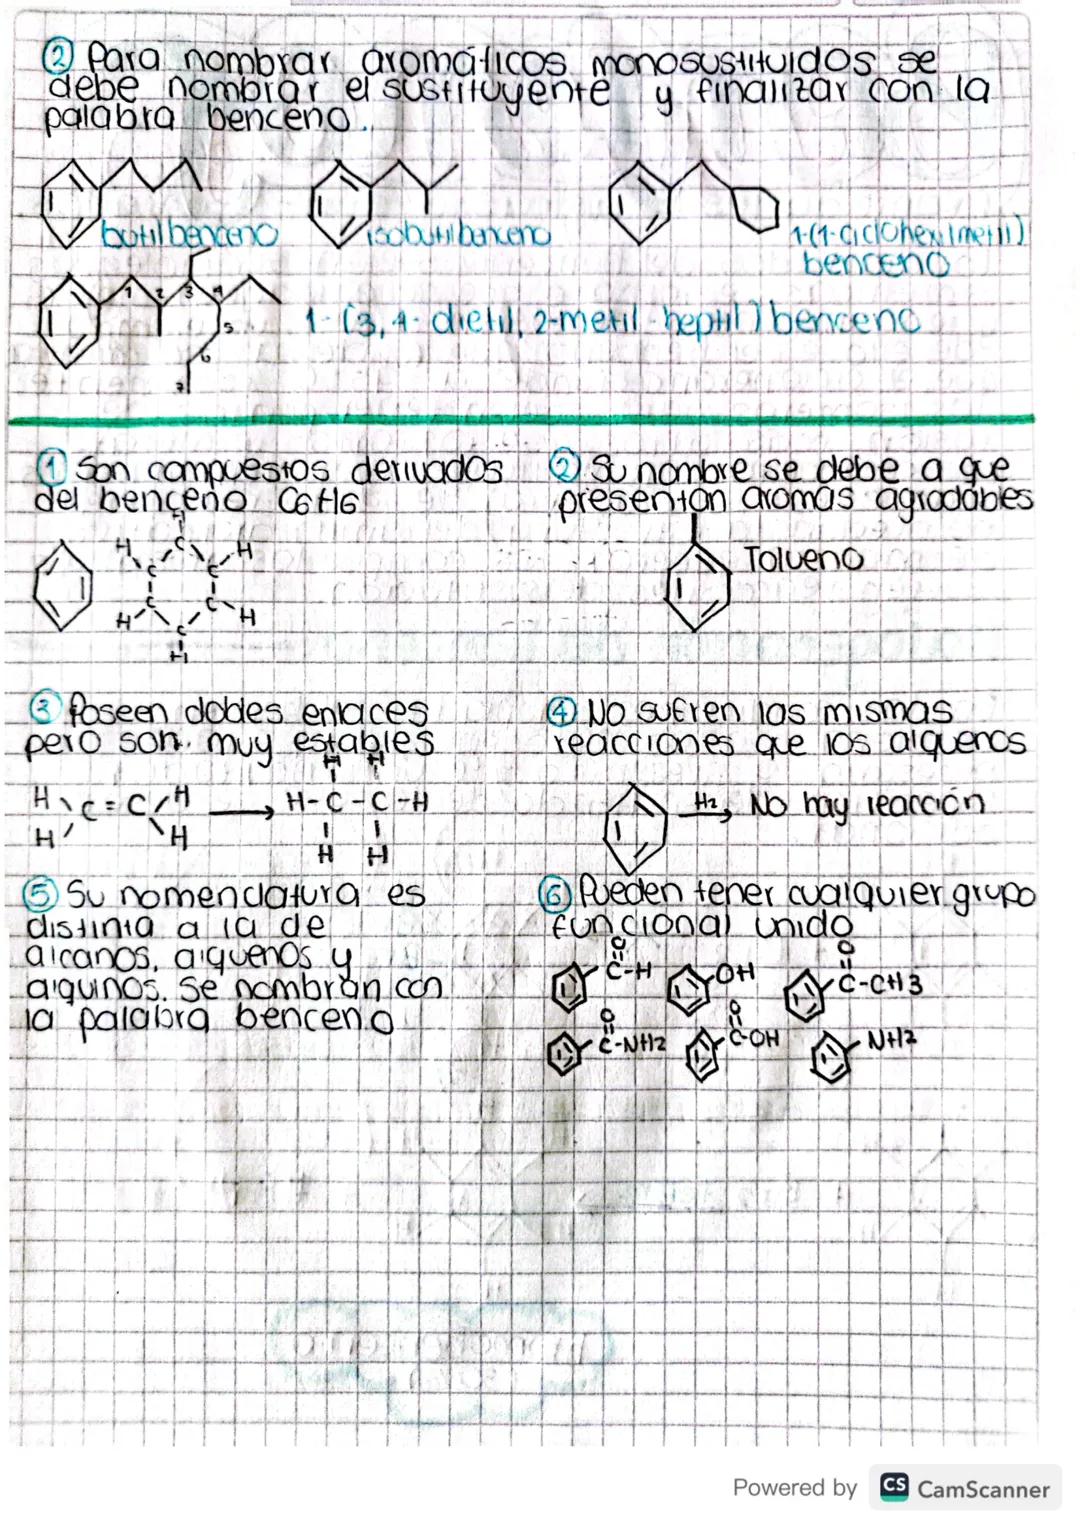 ② Para nombrar aromáticos monosustituidos se
debe nombrar el sustituyente y finalizar con la
palabra benceno.
butilbenceno
isobutilbenceno
1-(1-ciclohexilmetil)
benceno
1 2 3 4
5
6
7
1-(3,4-dietil, 2-metil-heptil) benceno
① Son compuestos derivados
del benceno C6H6
② Su nombre se debe a que
presentan aromas agradables
H C H
C C
C C
H C H
H
Tolueno
③ Poseen dobles enlaces
pero son muy estables
④ No sufren las mismas
reacciones que los alquenos
H H
H C=C H → H-C-C-H
H H
H H
H2 → No hay reacción
⑤ Su nomenclatura es
distinta a la de
alcanos, alquenos y
alquinos. Se nombran con
la palabra benceno
⑥ Pueden tener cualquier grupo
funcional unido
O
C-H
OH
O
C-CH3
O
C-NH2
O
C-OH
NH2
Powered by CS CamScanner